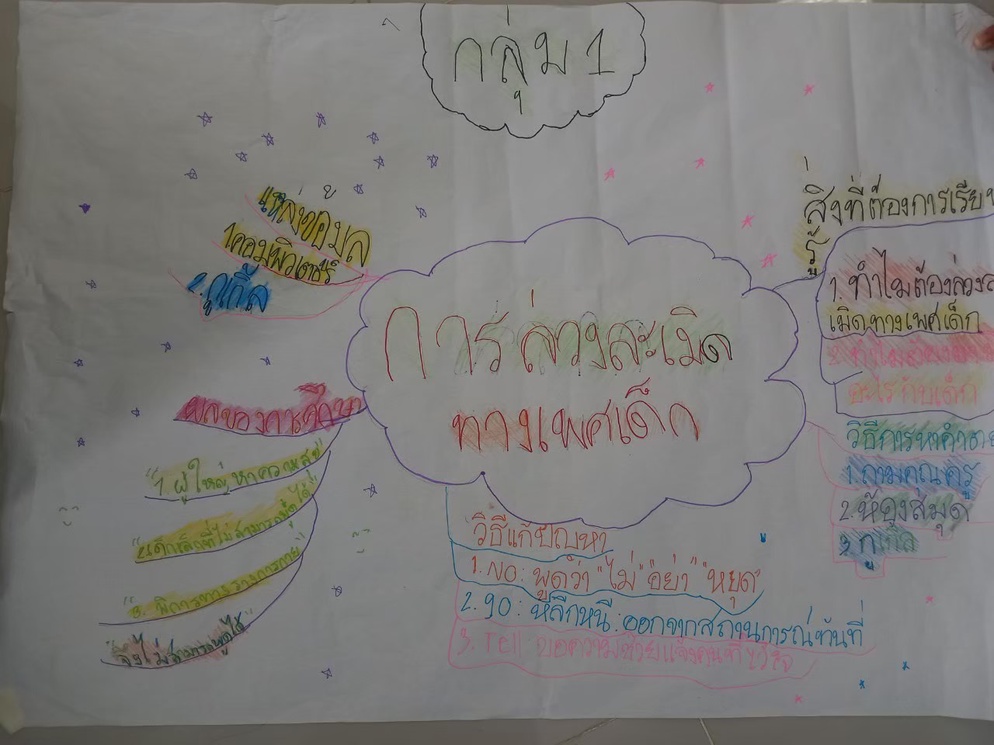 กลุ่ม 1
แหล่งข้อมูล
1คอมพิวเตอร์
2.กูเกิ้ล
สิ่งที่ต้องการเรียน
รู้
1. ทำไมต้องล่วงละ
เมิดทางเพศเด็ก
การล่วงละเมิด
ทางเพศเด็ก
ผลของการศึกษา
"1 ผู้ใหญ่ หาความสุข"
"3. พิการทางร่างกาย"
จึงไม่สามารถพูดได้"
วิธีการหาคำตอ
1.ถามคุณครู
2.ห้องสมุด
3 กูเกิล
วิธีแก้ปัญหา
1. NO: พูดว่า "ไม่" "อย่า" "หยุด"
2. go: หลีกหนี: ออกจากสถานการณ์ทันที่
3. Tell